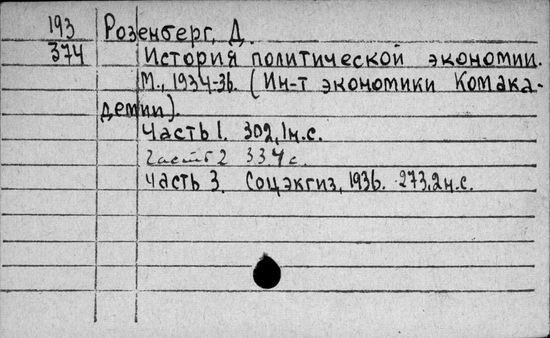 193 Розенберг, Д.
374 История политической экономии.
М., 1934-36. (Ин-т экономики Комака-
демии).
Часть 1. 302, 1н.с.
Часть 2 334 с.
Часть 3. Соцэкгиз, 1936. 273, 2н.с.